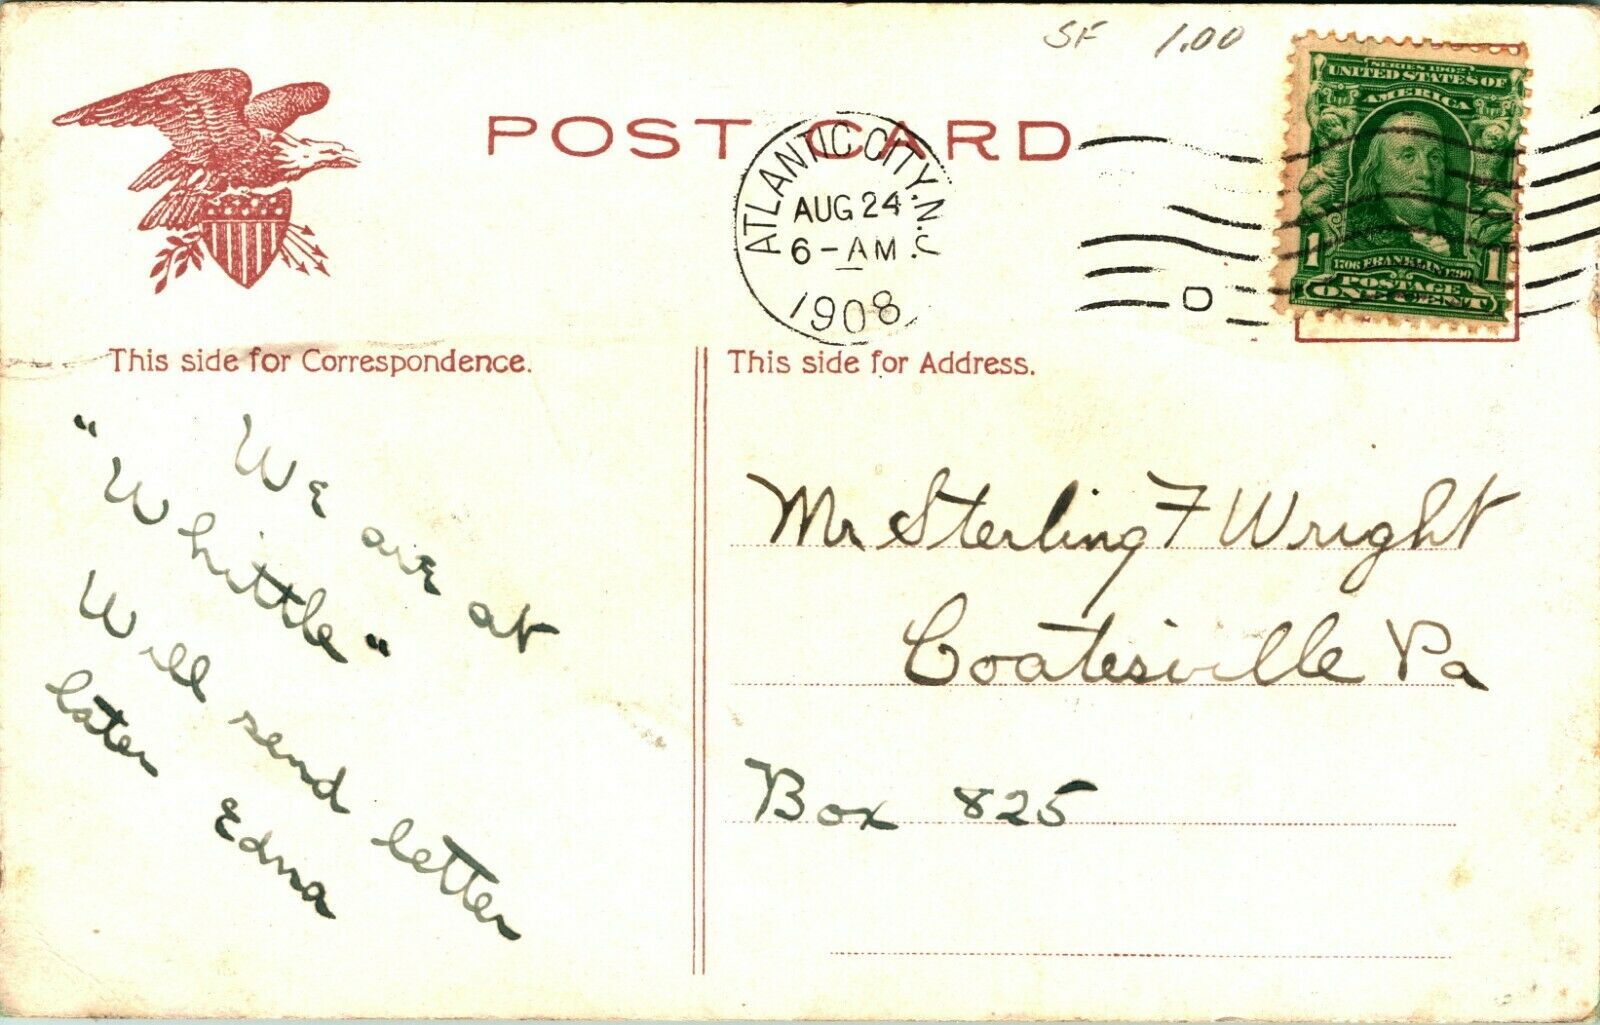 SF 1.00
POST CARD
ATLANTIC CITY, N.J.
AUG 24
6-AM.
1908
D
SERIES 1902
UNITED STATES OF
AMERICA
1 1
1706 FRANKLIN 1790
POSTAGE
ONE CENT
This side for Correspondence.
We are at
"Whittle"
Will send letter
later Edna
This side for Address.
Mr Sterling F Wright
Coatesville Pa
Box 825